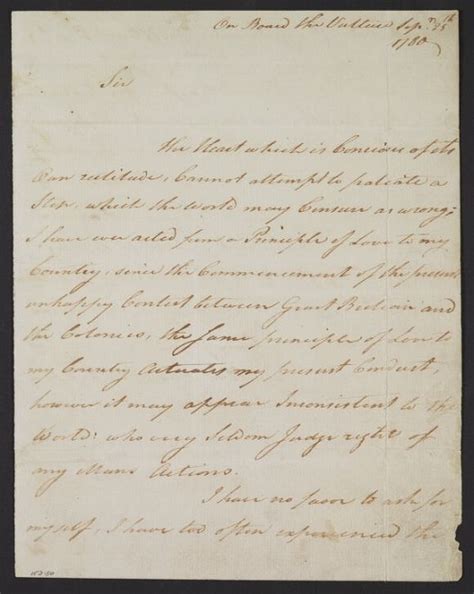 On Board the Vulture Sepr 25th
1780
Sir
The Heart which is Concious of its
Own rectitude, Cannot attempt to palliate a
Step, which the World may Censure as wrong;
I have ever acted from a Principle of Love to my
Country, since the Commencement of the present
unhappy Contest between Great Britain and
the Colonies, the same principle of Love to
my Country Actuates my present Conduct,
however it may appear Inconsistent to the
World: who very Seldom Judge right of
any Mans Actions.
I have no favor to ask for
myself, I have too often experienced the